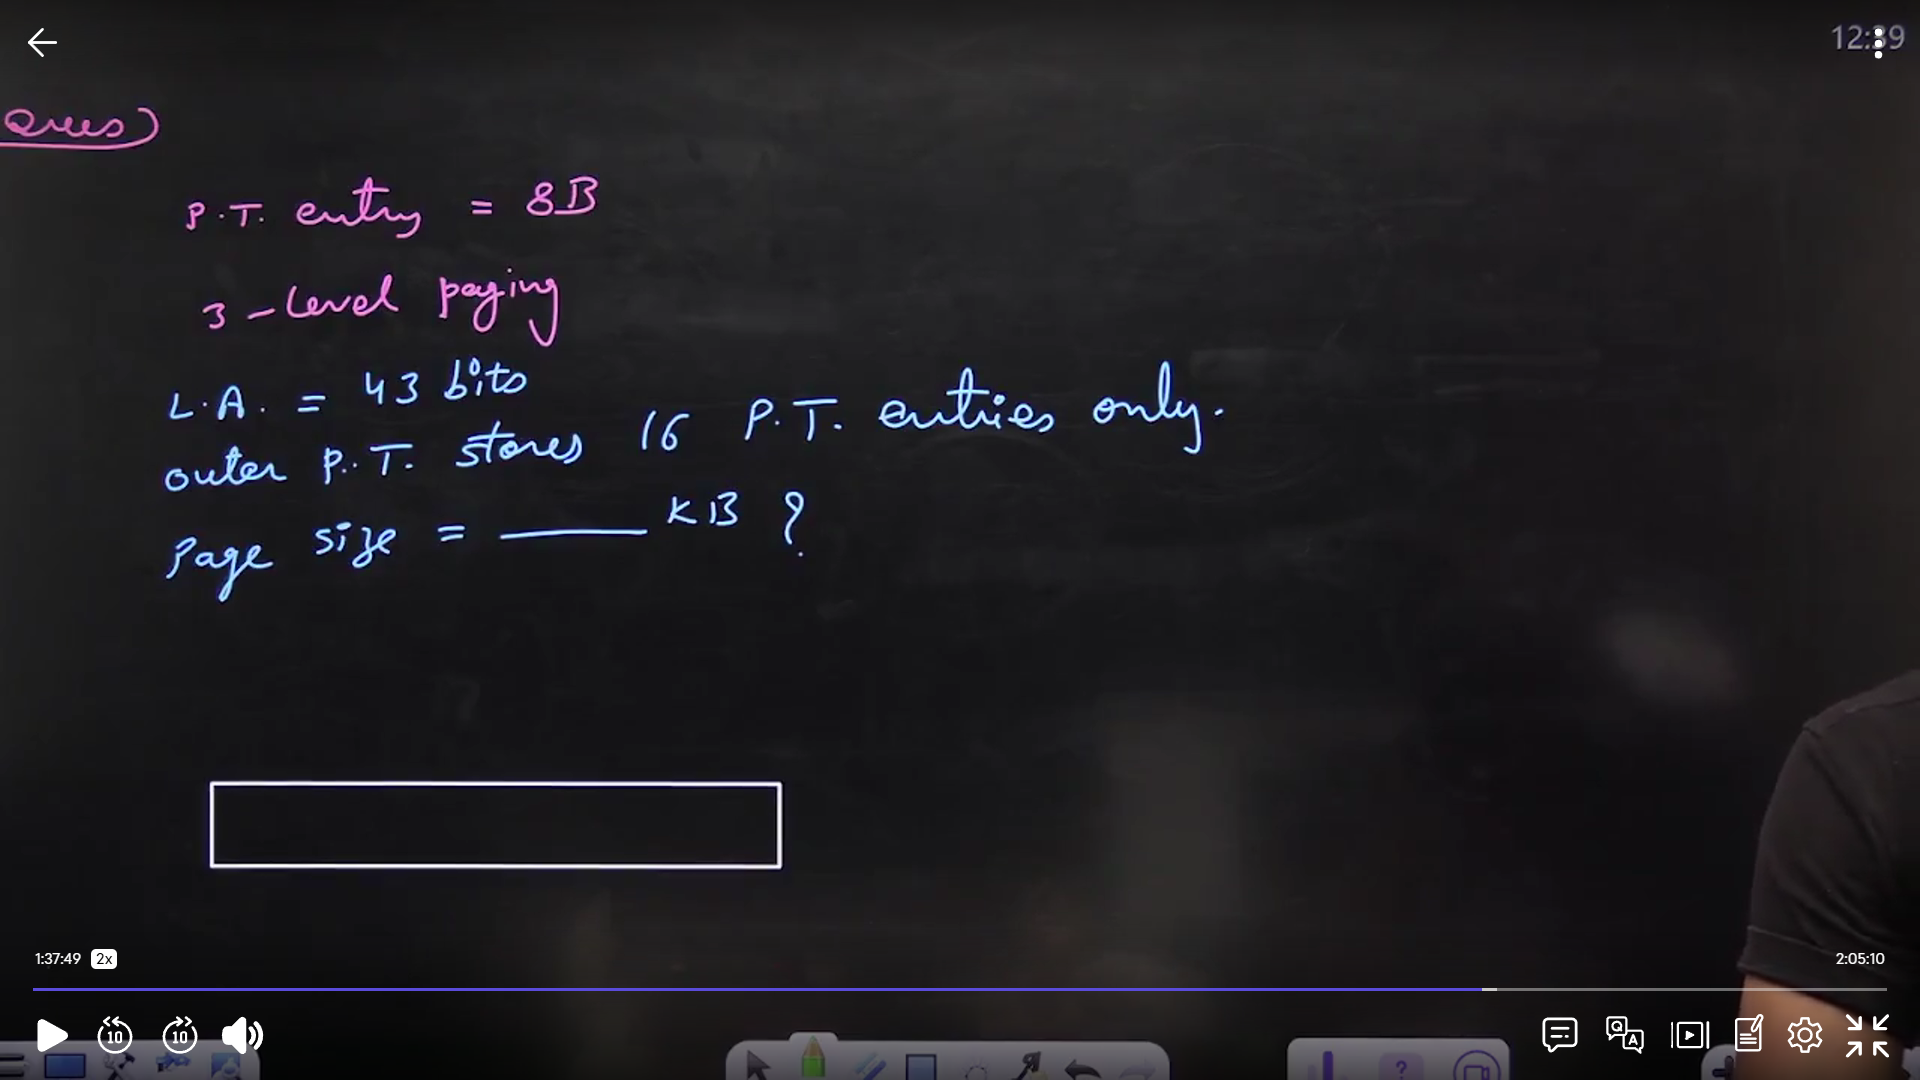 12:39
Ques)
P.T. entry = 8B
3-Level paging
L.A. = 43 bits
outer P.T. stores 16 P.T. entries only.
Page size = ____ KB ?
1:37:49 2x
2:05:10
10 10
Q A
?